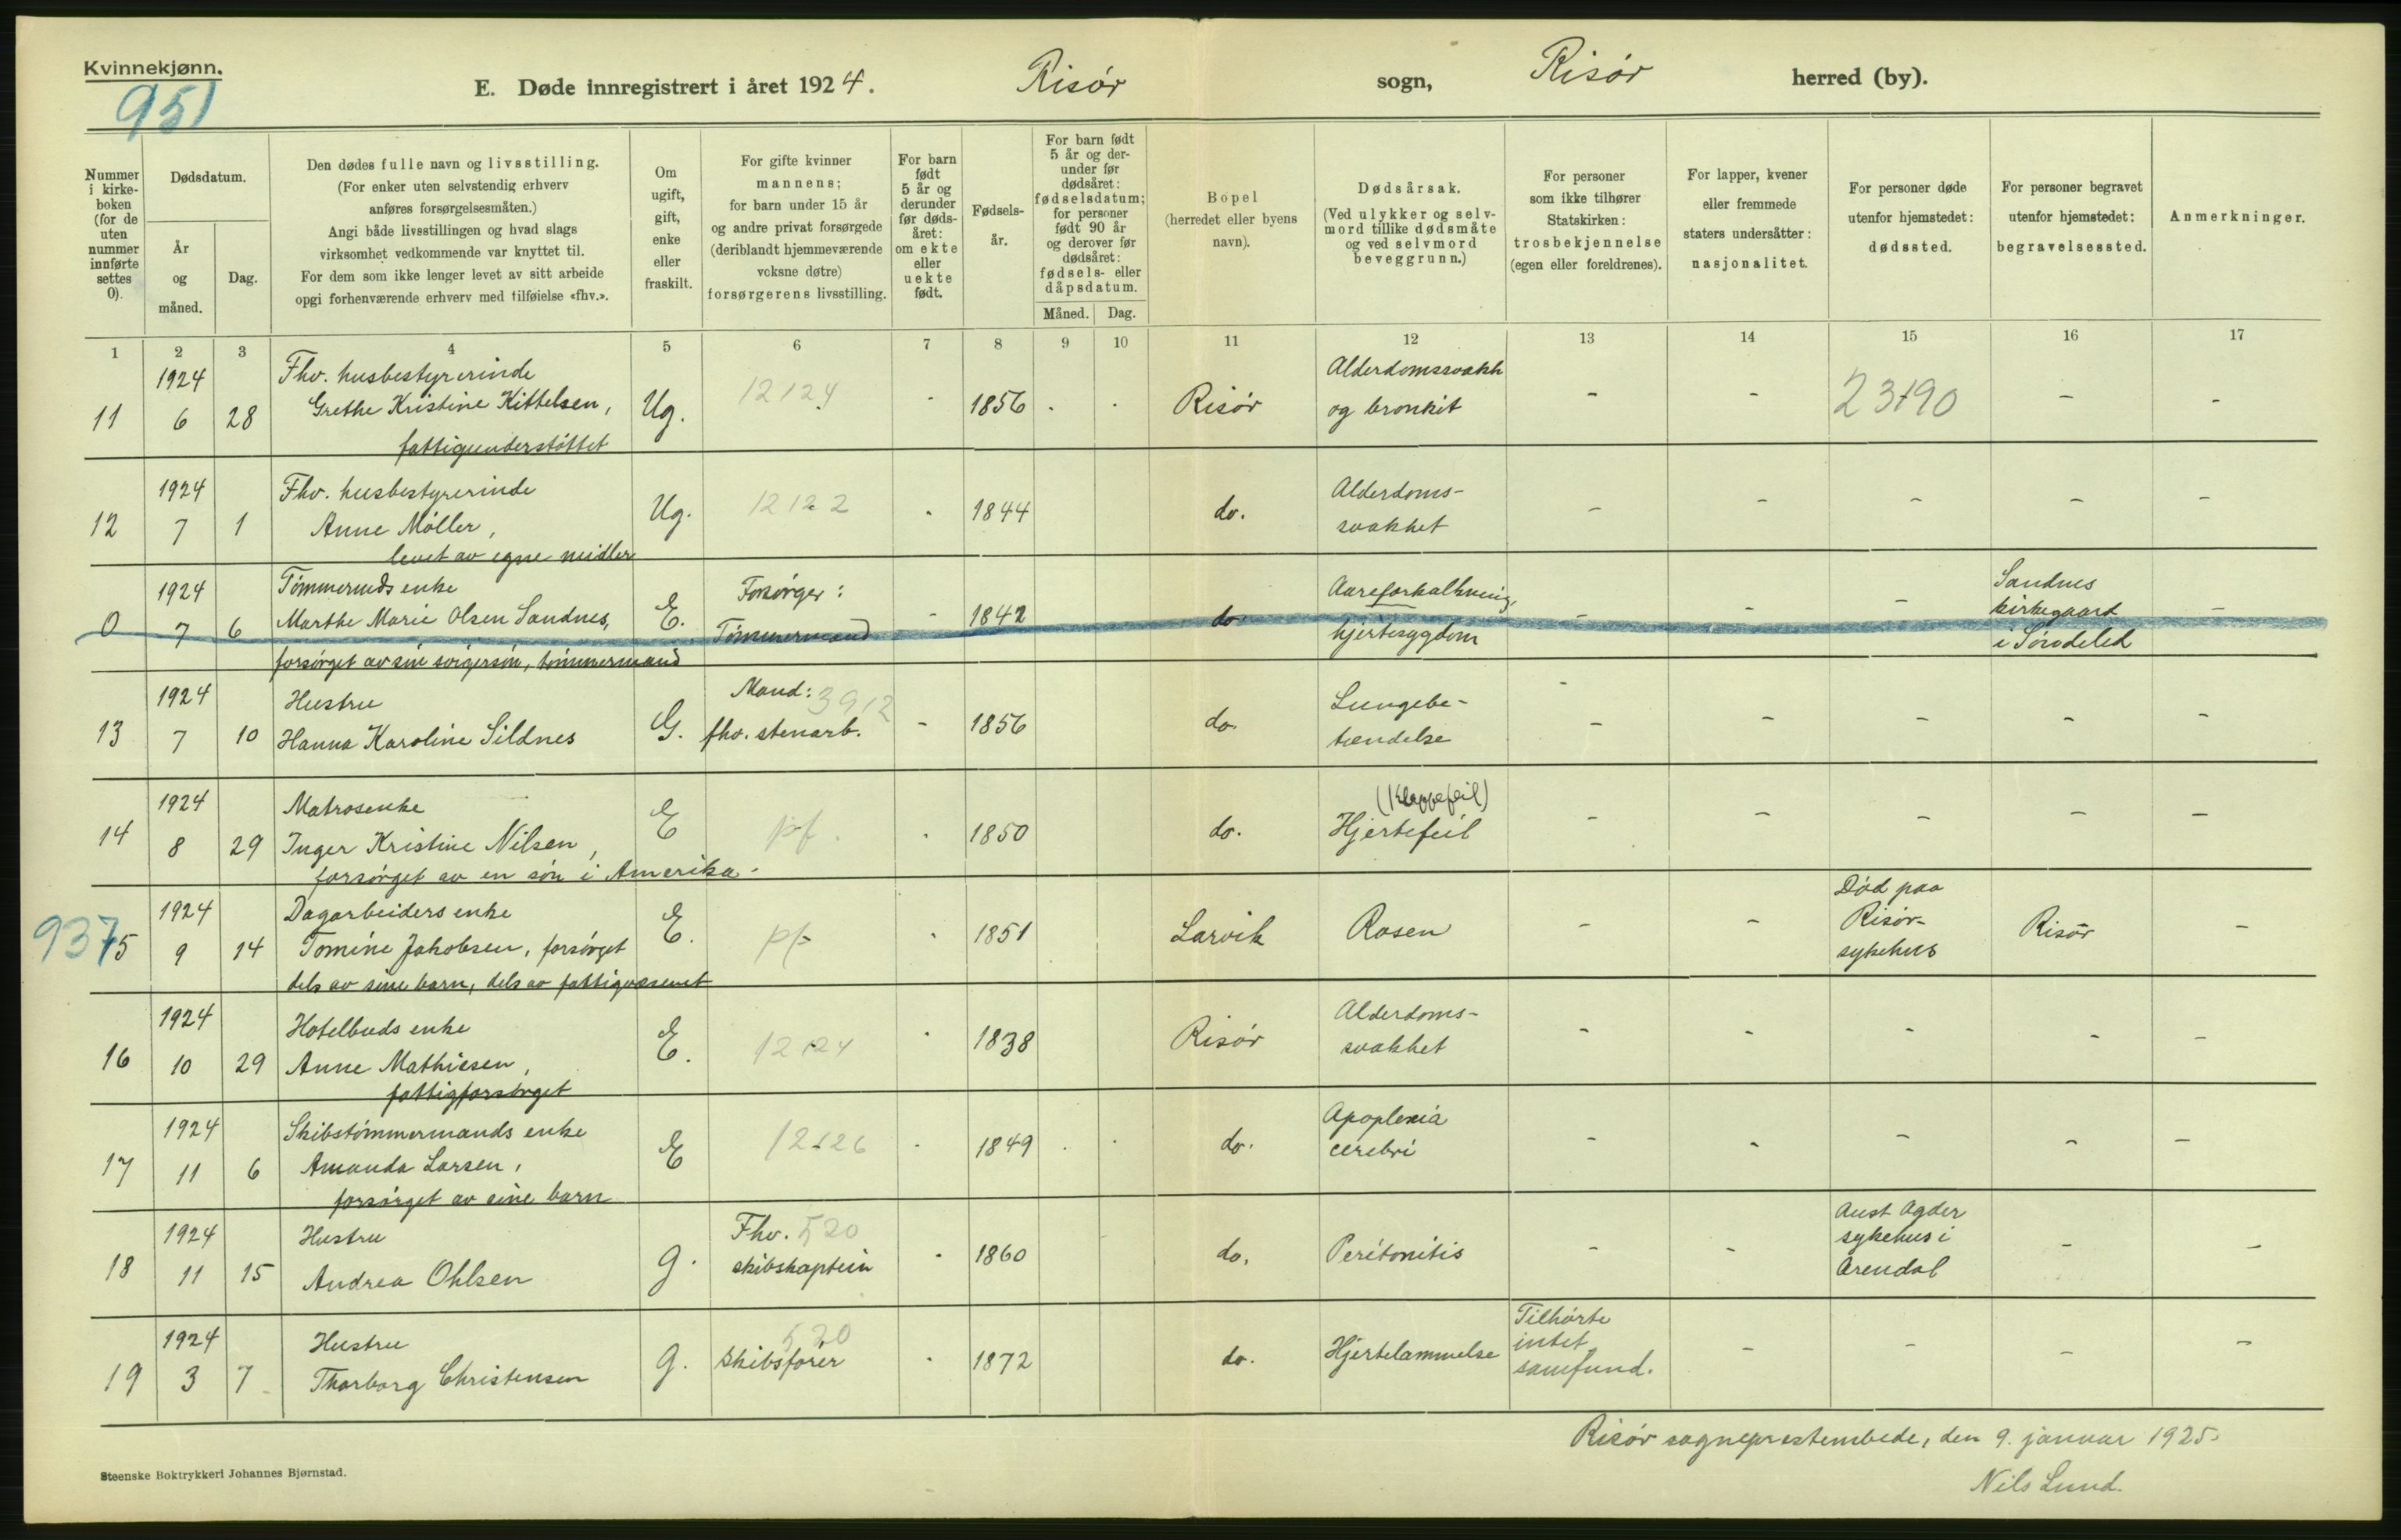 Kvinnekjønn.
951
E. Døde innregistrert i året 1924. Risør sogn, Risør herred (by).
Nummer i kirkeboken (for de uten nummer innførte settes 0).
Dødsdatum.
År og måned.
Dag.
Den dødes fulle navn og livsstilling.
(For enker uten selvstendig erhverv
anføres forsørgelsesmåten.)
Angi både livsstillingen og hvad slags
virksomhet vedkommende var knyttet til.
For dem som ikke lenger levet av sitt arbeide
opgi forhenværende erhverv med tilføielse «fhv.».
Om
ugift,
gift,
enke
eller
fraskilt.
For gifte kvinner
mannens;
for barn under 15 år
og andre privat forsørgede
(deriblandt hjemmeværende
voksne døtre)
forsørgerens livsstilling.
For barn
født
5 år og
derunder
før døds-
året:
om ekte
eller
uekte
født.
Fødsels-
år.
For barn født
5 år og der-
under før
dødsåret:
fødselsdatum;
for personer
født 90 år
og derover før
dødsåret:
fødsels- eller
dåpsdatum.
Måned. Dag.
Bopel
(herredet eller byens
navn).
Dødsårsak.
(Ved ulykker og selv-
mord tillike dødsmåte
og ved selvmord
beveggrunn.)
For personer
som ikke tilhører
Statskirken:
trosbekjennelse
(egen eller foreldrenes).
For lapper, kvener
eller fremmede
staters undersåtter:
nasjonalitet.
For personer døde
utenfor hjemstedet:
dødssted.
For personer begravet
utenfor hjemstedet:
begravelsessted.
Anmerkninger.
1 2 3 4 5 6 7 8 9 10 11 12 13 14 15 16 17
1924 Fhv. husbestyrerinde Alderdomssvakh
11 6 28 Grethe Kristine Kittelsen, Ug. 12124 - 1856 . . Risør og bronkit - - 23190 - -
fattigunderstøttet
1924 Fhv. husbestyrerinde Alderdoms-
12 7 1 Anne Møller, Ug. 12122 - 1844 do. svakhet - - - - -
levet av egne midler
1924 Tømmermds enke Forsørger: Aareforkalkning, Sandnes
0 7 6 Marthe Marie Olsen Sandnes, E. Tømmermand - 1842 do hjertesygdom - - - kirkegaard -
forsørget av sin svigersøn, tømmermand i Søndeled
1924 Hustru Mand: 3912 Lungebe-
13 7 10 Hanna Karoline Sildnes G. fhv. stenarb. - 1856 do. tændelse - - - - -
1924 Matrosenke (Klappefeil)
14 8 29 Inger Kristine Nilsen, E pf. - 1850 do. Hjertefeil - - - - -
forsørget av en søn i Amerika.
937
1924 Dagarbeiders enke Død paa
15 9 14 Tomine Jakobsen, forsørget E. pf - 1851 Larvik Rosen - - Risør- Risør -
dels av sine barn, dels av fattigvæsenet sykehus
1924 Hotelbuds enke Alderdoms-
16 10 29 Anne Mathiesen, E. 12124 - 1838 Risør svakhet - - - - -
fattigforsørget
1924 Skibstømmermands enke Apoplexia
17 11 6 Amanda Larsen, E 12126 - 1849 . . do. cerebri - - - - -
forsørget av sine barn
1924 Hustru Fhv. 520 Aust Agder
18 11 15 Andrea Ohlsen g. skibskaptein - 1860 do. Peritonitis - - sykehus i - -
Arendal
1924 Hustru 520 Tilhørte
19 3 7 Thorborg Christensen g. skibsfører - 1872 do. Hjertelammelse intet - - - -
samfund.
Risør sogneprestembede, den 9. januar 1925.
Nils Lund.
Steenske Boktrykkeri Johannes Bjørnstad.